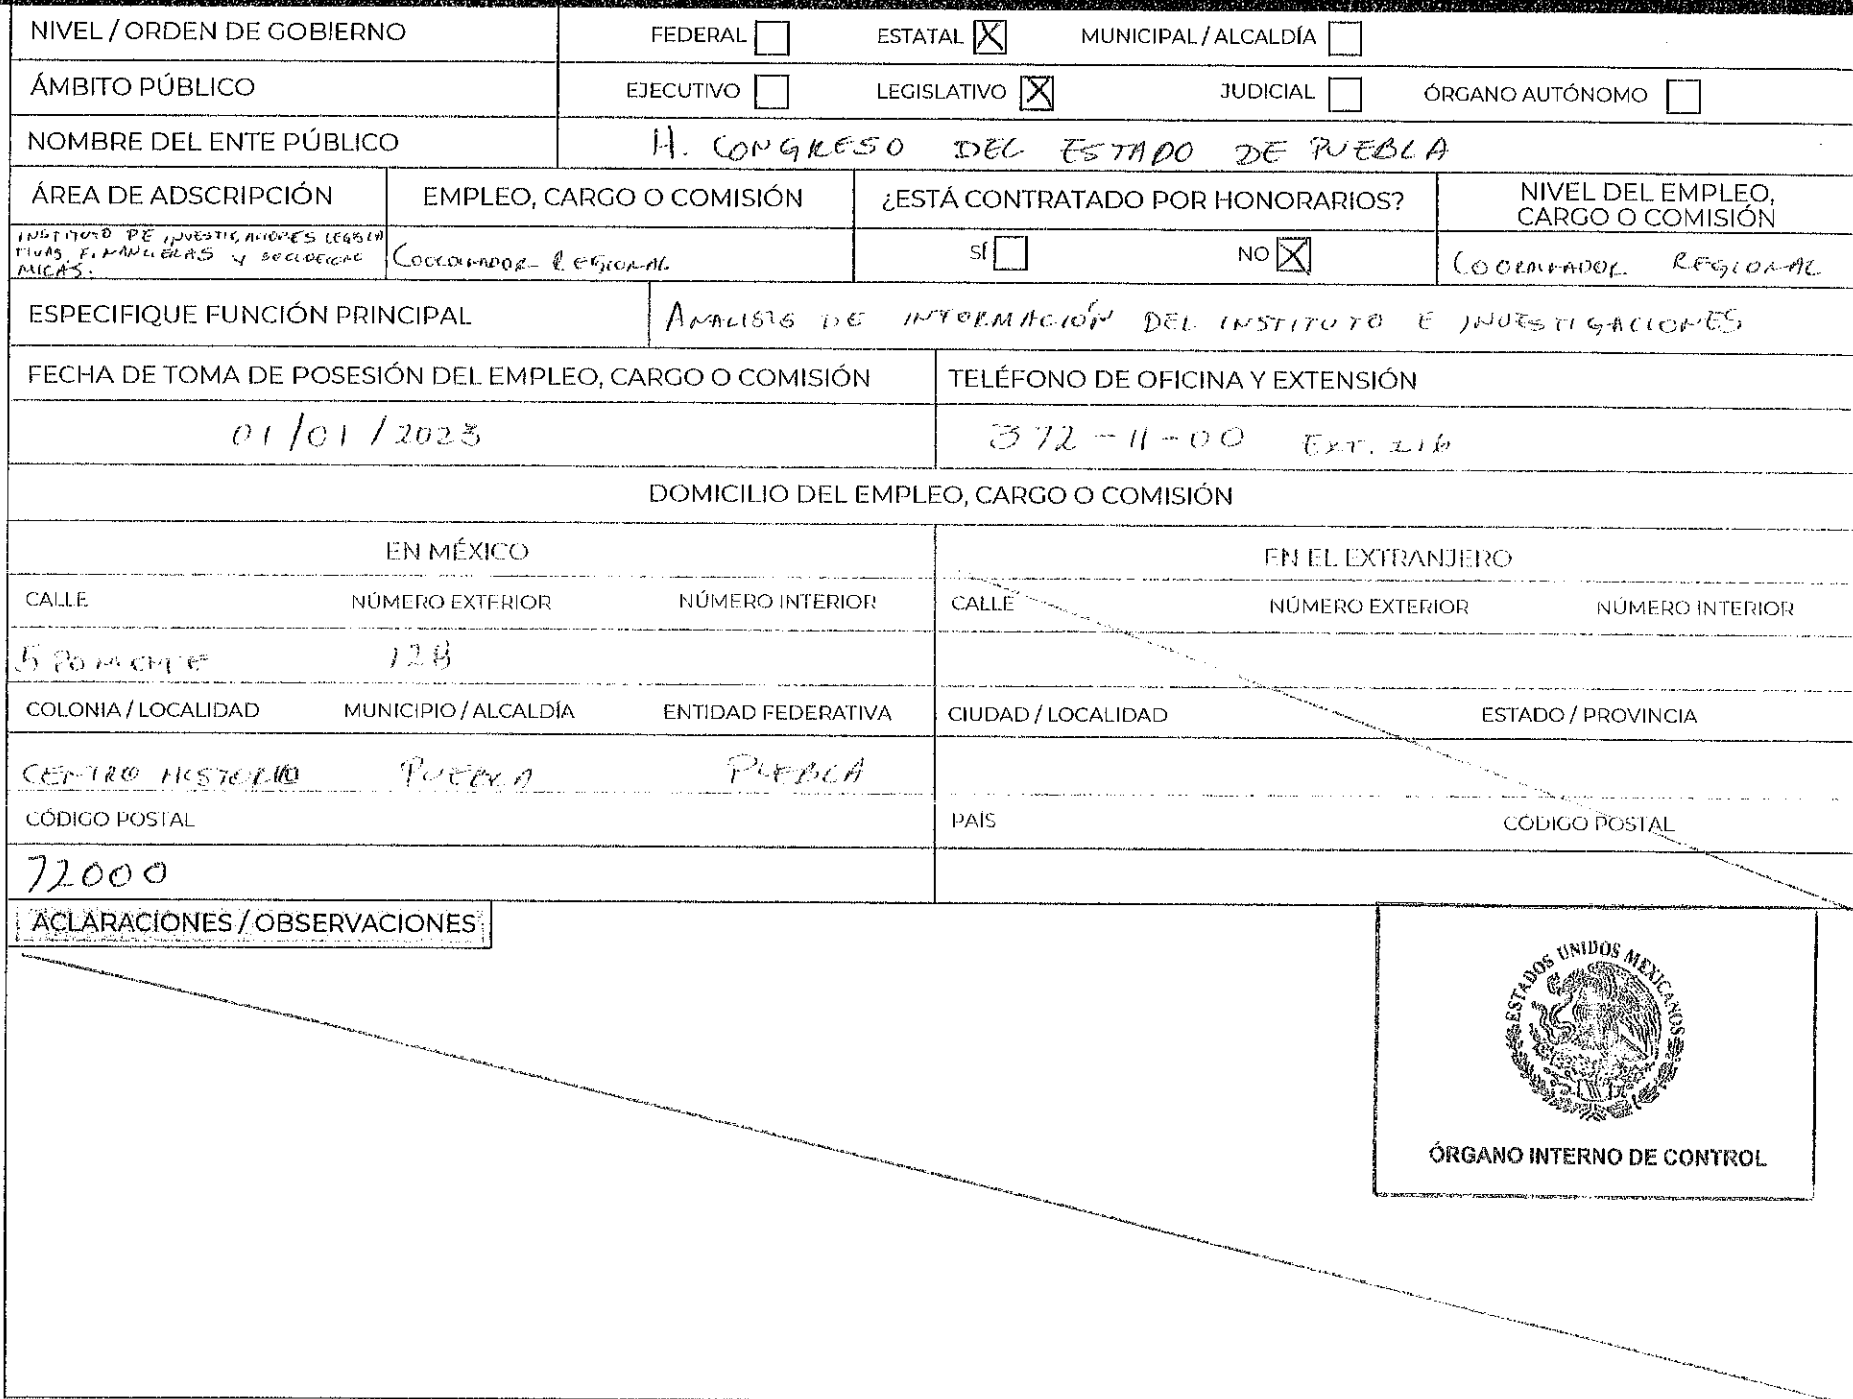 NIVEL / ORDEN DE GOBIERNO FEDERAL ESTATAL X MUNICIPAL / ALCALDÍA
ÁMBITO PÚBLICO EJECUTIVO LEGISLATIVO X JUDICIAL ÓRGANO AUTÓNOMO
NOMBRE DEL ENTE PÚBLICO H. CONGRESO DEL ESTADO DE PUEBLA
ÁREA DE ADSCRIPCIÓN EMPLEO, CARGO O COMISIÓN ¿ESTÁ CONTRATADO POR HONORARIOS? NIVEL DEL EMPLEO,
CARGO O COMISIÓN
INSTITUTO DE INVESTIGACIONES LEGISLA
TIVAS, FINANCIERAS Y SOCIOECONO
MICAS.
COORDINADOR REGIONAL SÍ NO X COORDINADOR REGIONAL
ESPECIFIQUE FUNCIÓN PRINCIPAL ANALISIS DE INFORMACIÓN DEL INSTITUTO E INVESTIGACIONES
FECHA DE TOMA DE POSESIÓN DEL EMPLEO, CARGO O COMISIÓN TELÉFONO DE OFICINA Y EXTENSIÓN
01/01/2023 372-11-00 EXT.
DOMICILIO DEL EMPLEO, CARGO O COMISIÓN
EN MÉXICO EN EL EXTRANJERO
CALLE NÚMERO EXTERIOR NÚMERO INTERIOR CALLE NÚMERO EXTERIOR NÚMERO INTERIOR
5 PONIENTE
COLONIA / LOCALIDAD MUNICIPIO / ALCALDÍA ENTIDAD FEDERATIVA CIUDAD / LOCALIDAD ESTADO / PROVINCIA
CENTRO HISTORICO PUEBLA PUEBLA
CÓDIGO POSTAL PAÍS CÓDIGO POSTAL
72000
ACLARACIONES / OBSERVACIONES
ESTADOS UNIDOS MEXICANOS
ÓRGANO INTERNO DE CONTROL